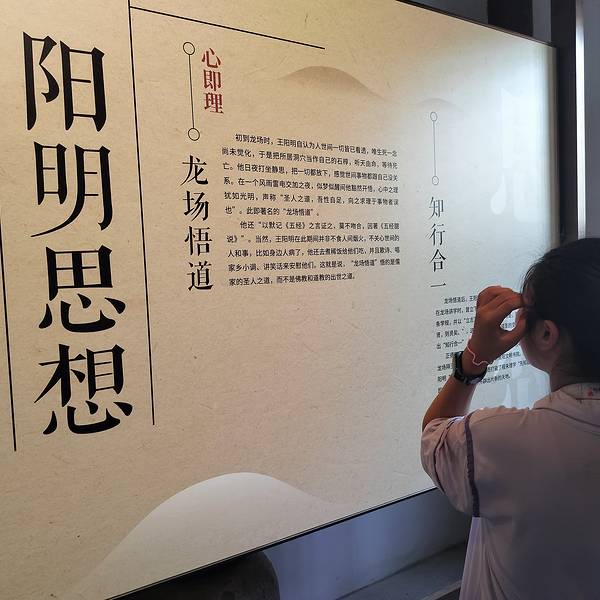 阳明思想
心即理
龙场悟道
初到龙场时，王阳明自认为人世间一切皆已看透，唯生死一念
尚未觉化，于是把所居洞穴当作自己的石椁，听天由命，等待死
亡。他日夜打坐静思，把一切都放下，感觉世间事物都跟自己没关
系。在一个风雨雷电交加之夜，似梦似醒间他豁然开悟，心中之理
犹如光明，声称“圣人之道，吾性自足，向之求理于事物者误
也”。此即著名的“龙场悟道”。
他还“以默记《五经》之言证之，莫不吻合，因著《五经臆
说》”。当然，王阳明在此期间并非不食人间烟火，不关心世间的
人和事，比如身边人病了，他还去煮稀饭给他们吃，并且歌诗、唱
家乡小调、讲笑话来安慰他们。这就是说，“龙场悟道”悟的是儒
家的圣人之道，而不是佛教和道教的出世之道。
知行合一
龙场悟道后，王阳
在龙场讲学时，首立
条学规，并以“立志
贤，则贤矣。”
出“知行合一”